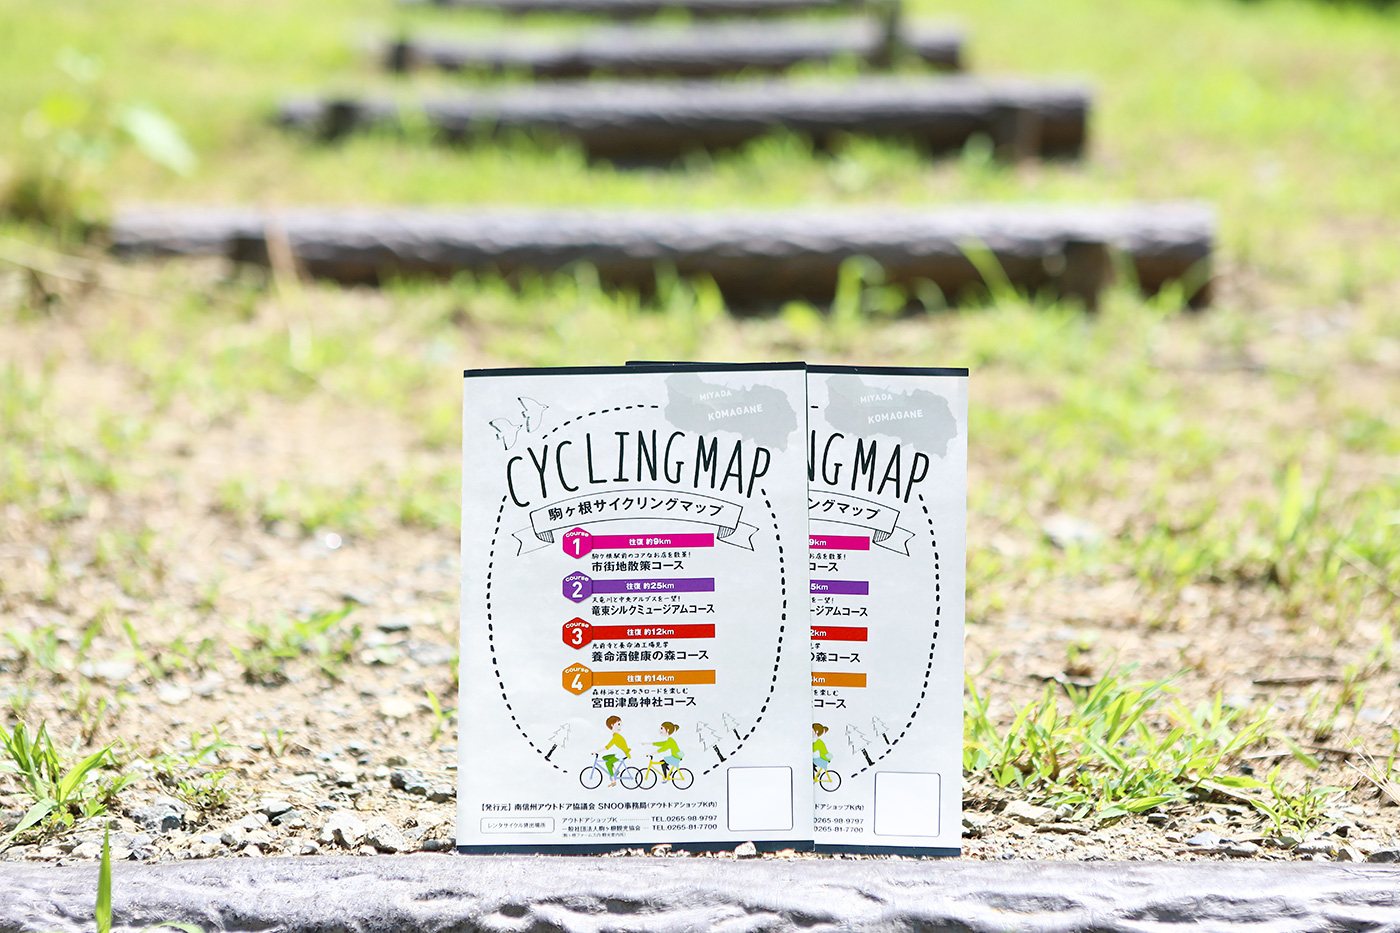 MIYADA
KOMAGANE
CYCLING MAP
駒ヶ根サイクリングマップ
course
1
往復 約9km
駒ヶ根駅前のコアなお店を散策!
市街地散策コース
course
2
往復 約25km
天竜川と中央アルプスを一望!
竜東シルクミュージアムコース
course
3
往復 約12km
光前寺と養命酒工場見学
養命酒健康の森コース
course
4
往復 約14km
森林浴とこまゆきロードを楽しむ
宮田津島神社コース
【発行元】南信州アウトドア協議会 SNOO事務局(アウトドアショップK内)
レンタサイクル貸出場所
アウトドアショップK ─── TEL.0265-98-9797
一般社団法人駒ヶ根観光協会 ─ TEL.0265-81-7700
MIYADA
KOMAGANE
NG MAP
ングマップ
9km
お店を散策!
コース
5km
を一望!
ージアムコース
2km
学
の森コース
km
を楽しむ
コース
ウトドアショップK内)
0265-98-9797
0265-81-7700